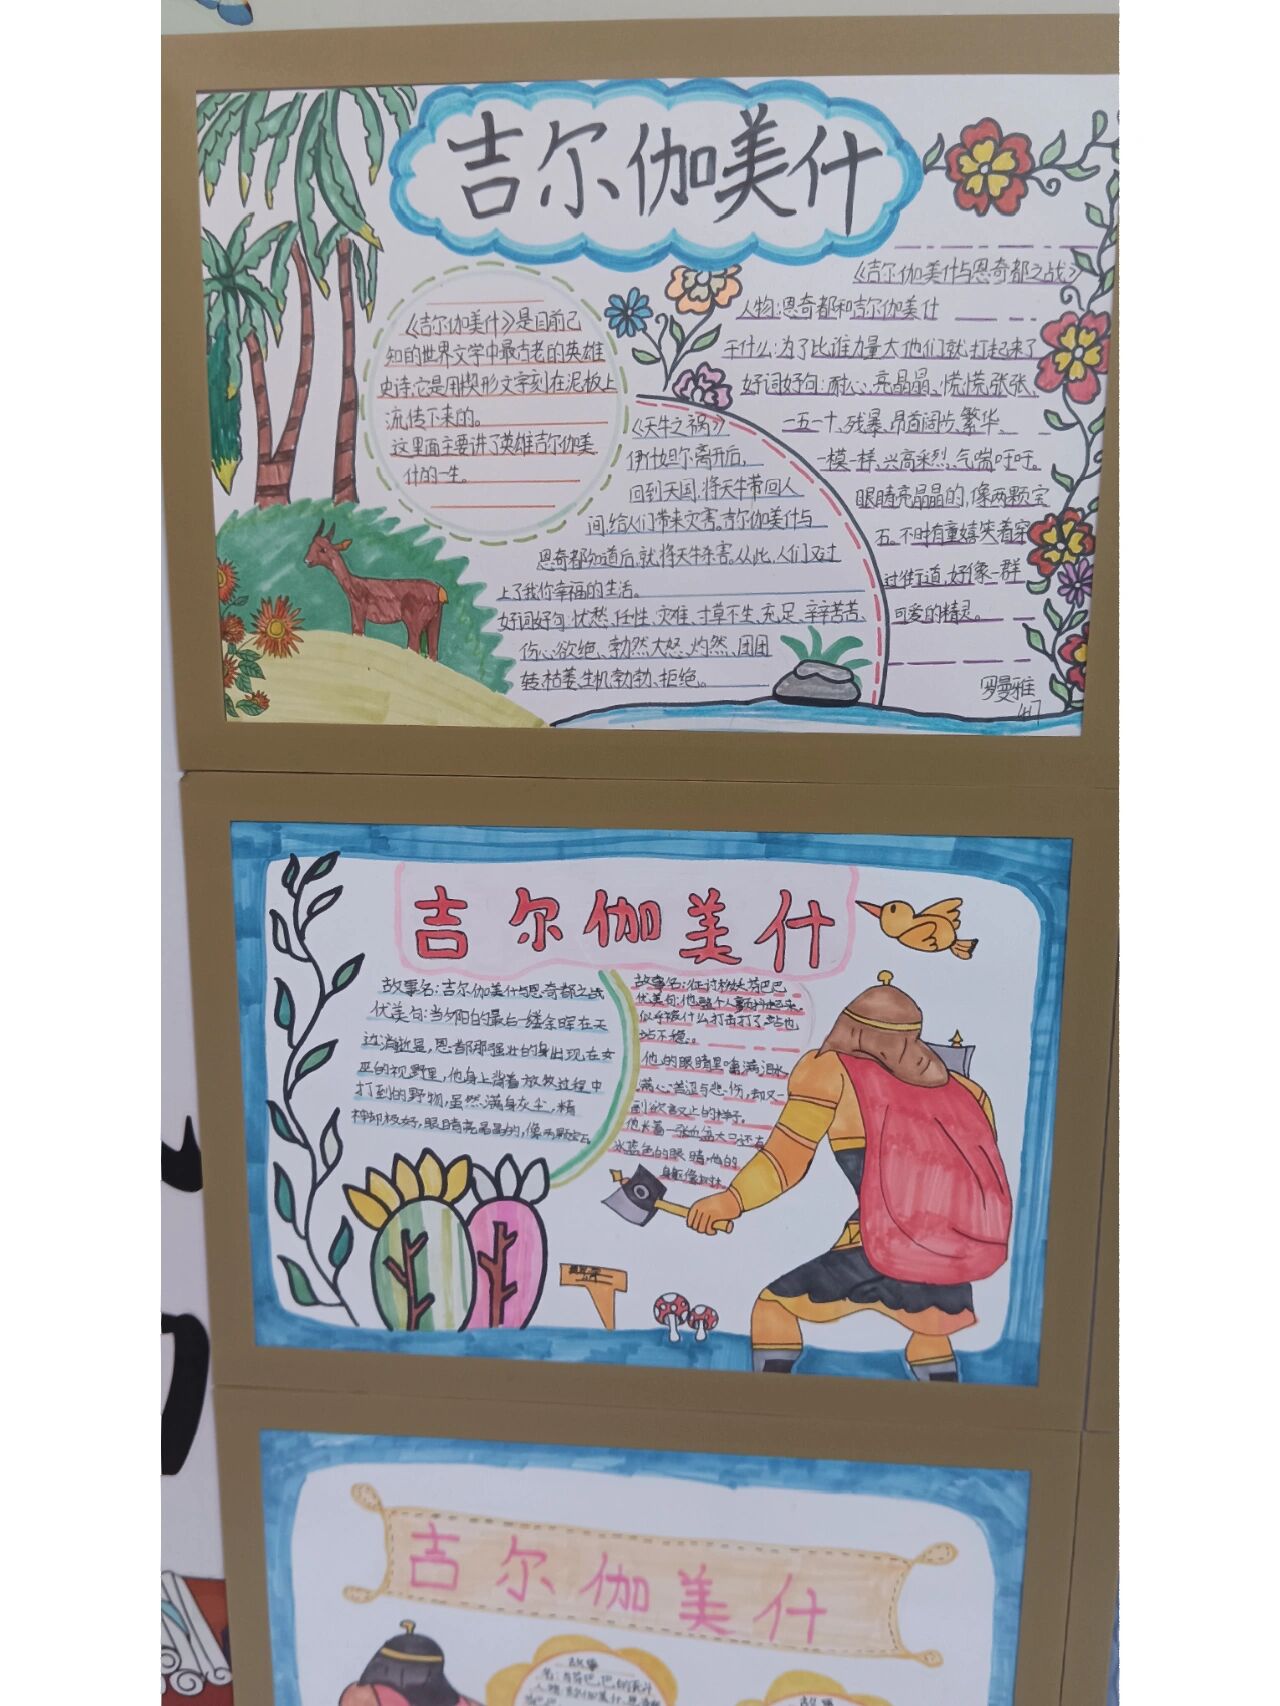 吉尔伽美什
《吉尔伽美什》是目前已
知的世界文学中最古老的英雄
史诗,它是用楔形文字刻在泥板上
流传下来的。
这里面主要讲了英雄吉尔伽美
什的一生。
《吉尔伽美什与恩奇都之战》
人物:恩奇都和吉尔伽美什
干什么:为了比谁力量大他们就打起来了
好词好句:耐心、亮晶晶、慌慌张张、
一五一十、残暴、昂首阔步、繁华、
一模一样、兴高采烈、气喘吁吁。
眼睛亮晶晶的,像两颗宝
石。不时有童嬉笑着穿
过街道,好像一群
可爱的精灵。
罗曼雅
《天牛之祸》
伊什妲尔离开后,
回到天国,将天牛带回人
间,给人们带来灾害。吉尔伽美什与
恩奇都知道后,就将天牛杀害。从此,人们又过
上了我你幸福的生活。
好词好句:忧愁、任性、灾难、寸草不生、充足、辛辛苦苦、
伤心欲绝、勃然大怒、灼然、团团
转、枯萎、生机勃勃、拒绝。
吉尔伽美什
故事名:吉尔伽美什与恩奇都之战
优美句:当夕阳的最后一缕余晖在天
边消逝是,恩都那强壮的身出现在女
巫的视野里,他身上背着放牧过程中
打到的野物,虽然满身灰尘,精
神却极好,眼睛亮晶晶的,像两颗宝石
故事名:征讨杉妖芬巴巴
优美句:他整个人颤抖起来。
似乎被什么打击打了站也
站不稳。
他的眼睛里噙满泪水
满心盖边与悲伤,却又一
副欲言又止的样子。
他长着一张血盆大口还有
冰蓝色的眼睛,他的
身躯像杉木
吉尔伽美什
故事
故事